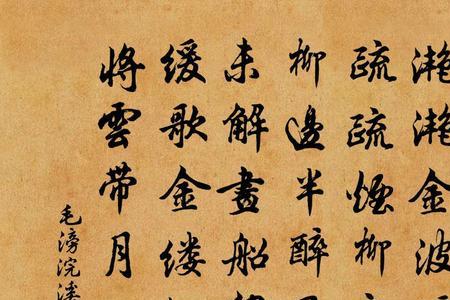 滟滟金波
疏疏煙柳
柳邊半醉
未解畫船
缓歌金缕
將雲带月
毛滂浣溪